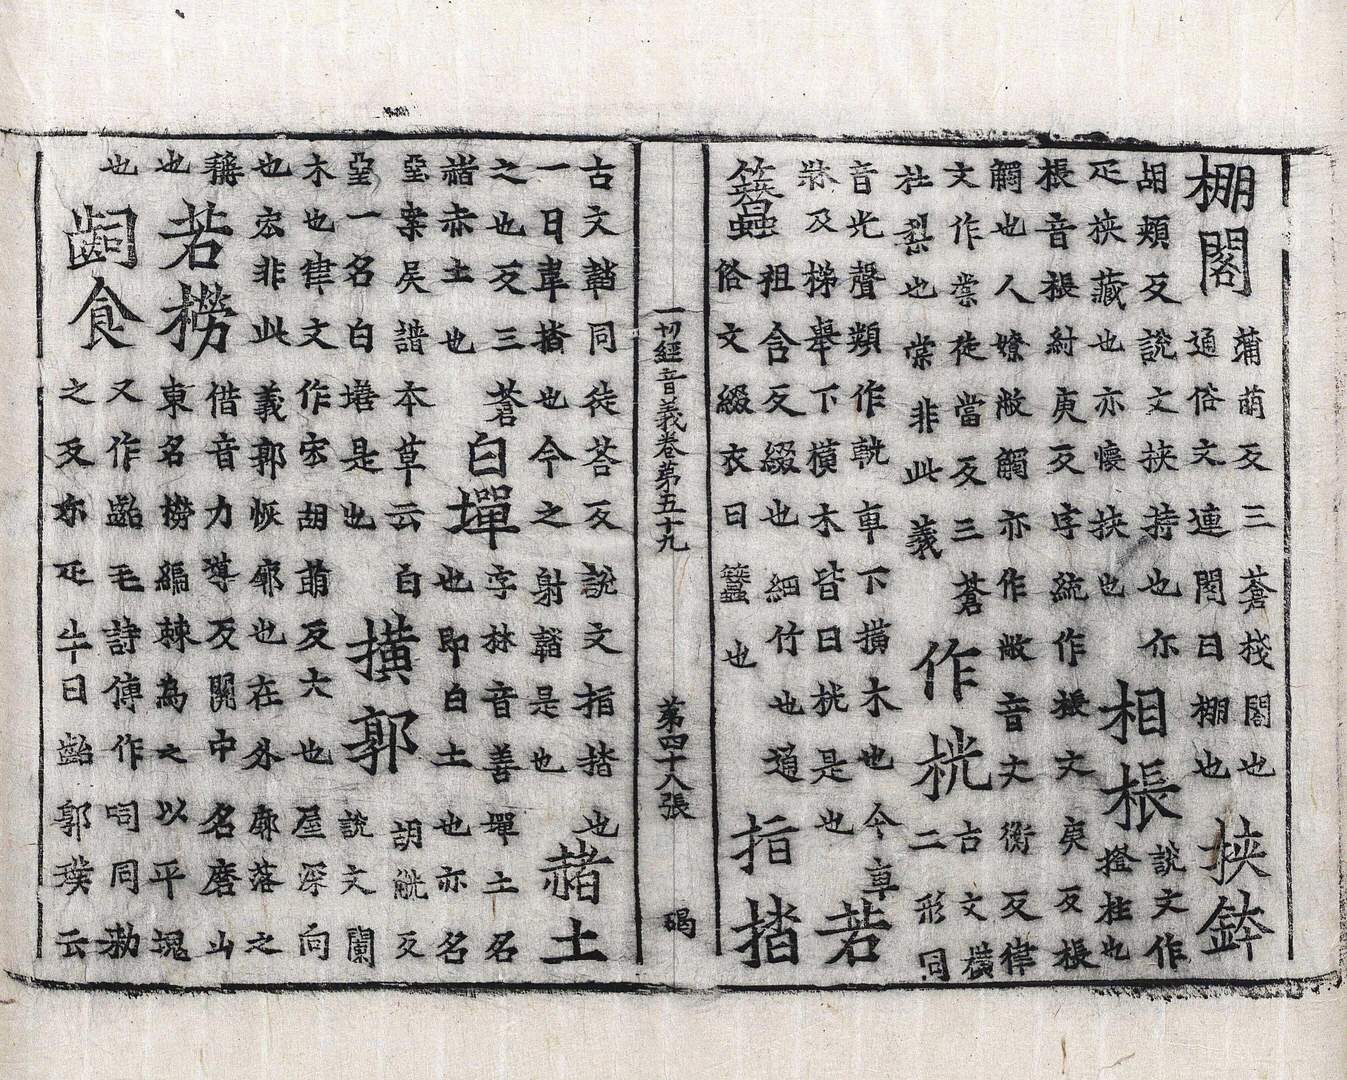 棚閣 蒱萌反三蒼棧閣也
通俗文連閣曰棚也 挾鉢
胡頰反說文挾持也亦
疋挾藏也亦懷挾也 相棖 說文作
橙柱也
棖音棖紂庚反字統作振文庚反棖
觸也人嫽敝觸亦作敝音文衡反律
文作棠徒當反三蒼
杜梨也棠非此義 作桄 古文撗
二形同
音光聲類作軦車下撗木也今車
牀及梯舉下橫木皆曰桄是也 若
簪 祖含反綴也細竹也通
俗文綴衣曰簪也 指揩
一切經音義卷第五十九 第四十八張 碣
古文韜同徒荅反說文指揩也
一曰韋揩也今之射韜是也 赭土
之也反三蒼
赭赤土也 白墠 字林音善墠土名
也即白土也亦名
堊案吳譜本草云白
堊一名白墡是也 撗郭 胡觥反
說文闌
木也律文作宏胡萌反大也屋深向
也宏非此義郭恢廓也在外廓落之
稱
也 若橯 借音力導反關中名磨山
東名橯編棘為之以平塊
也 齝食 又作齝毛詩傳作呞同勑
之反尔疋牛曰齝郭璞云